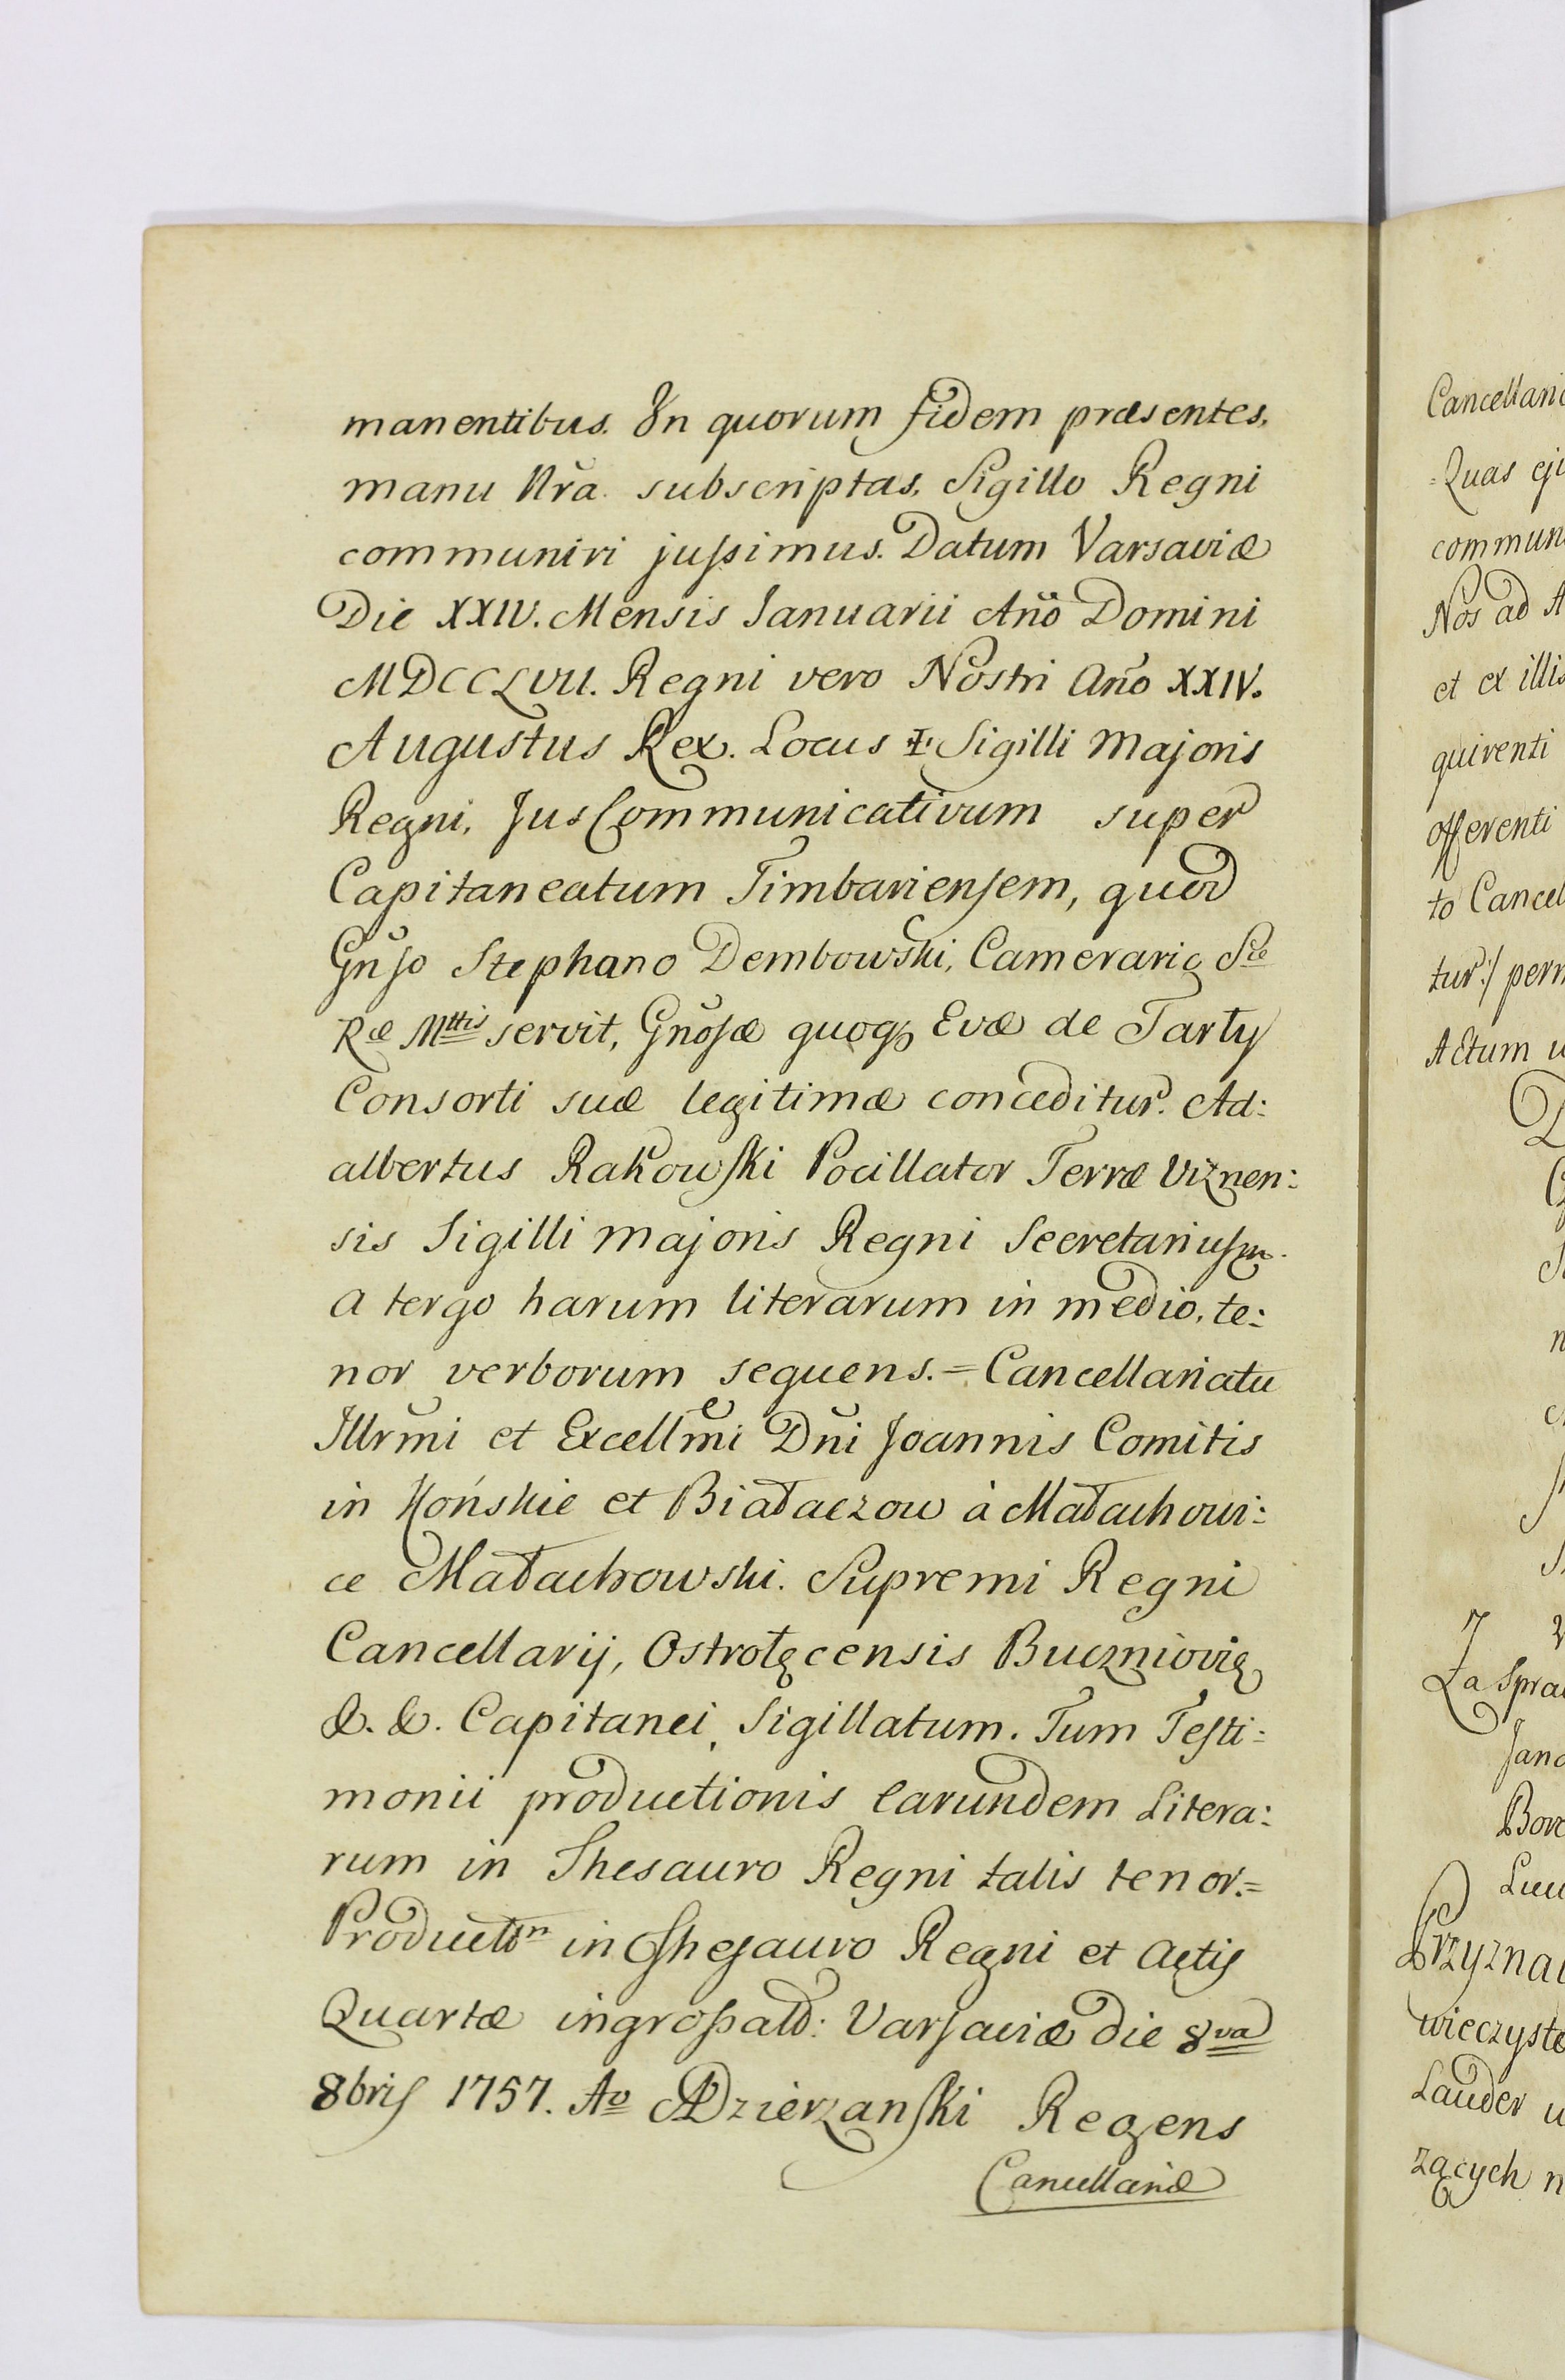 manentibus. In quorum fidem præsentes,
manu Nr̃a. subscriptas, Sigillo Regni
communiri jussimus. Datum Varsaviæ
Die XXIV. Mensis Januarii Año Domini
MDCCLVII. Regni vero Nostri Año XXIV.
Augustus Rex. Locus ‡ Sigilli Majoris
Regni, Jus Communicativum super
Capitaneatum Timbariensem, quod
Gñso Stephano Dembowski, Camerario Sæ
Ræ Mttis servit, Gñosæ quoqꝫ Evæ de Tarły
Consorti suæ legitimæ conceditur. Ad:
albertus Rakowski Pocillator Terræ Viznen:
sis Sigilli Majoris Regni Secretarius mp.
A tergo harum literarum in medio, te:
nor verborum sequens. = Cancellariatu
Illrmi et Excellmi Dñi Joannis Comitis
in Końskie et Białaczow à Małachowi:
ce Małachowski. Supremi Regni
Cancellarij, Ostrołęcensis
&. &. Capitanei, Sigillatum. Tum Testi:
monii productionis earundem Litera:
rum in Thesauro Regni talis tenor. =
in Thesauro Regni et Actis
Quartæ ingrossatt: Varsaviæ die 8va
8bris 1757. Ao ADzierzanski Regens
Cancellariæ
Cancellari
Quas ej
commun
Nos ad A
et ex illis
quirenti
offerenti
to Cancel
tur:/ perm
Actum u
Za Spra
Jano
Przyznai
wieczyste
Lauder u
zących n